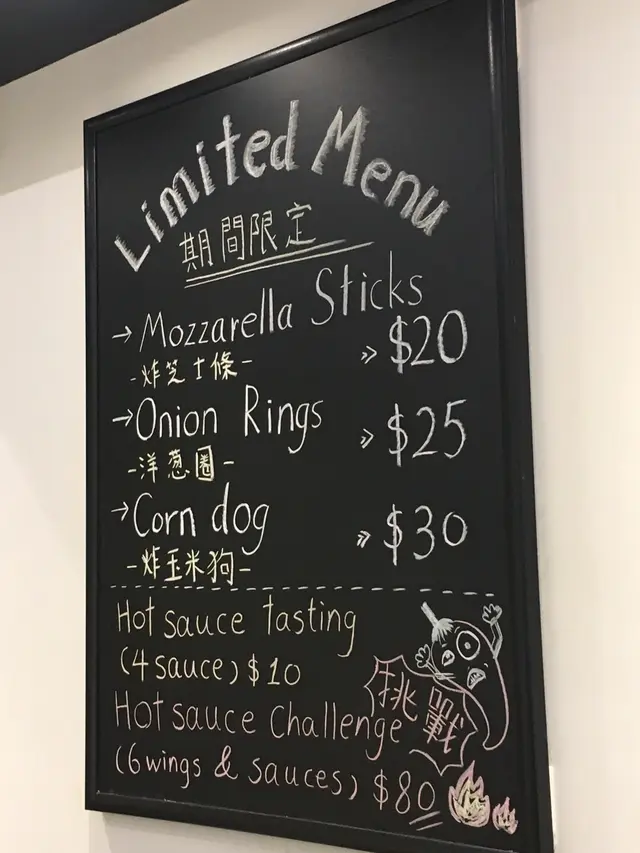 Limited Menu
期間限定
→ Mozzarella Sticks
» $20
-炸芝士條-
→ Onion Rings
» $25
-洋葱圈-
→ Corn dog
» $30
-炸玉米狗-
Hot sauce tasting
(4 sauce) $10
挑戰
Hot sauce Challenge
(6 wings & sauces) $80